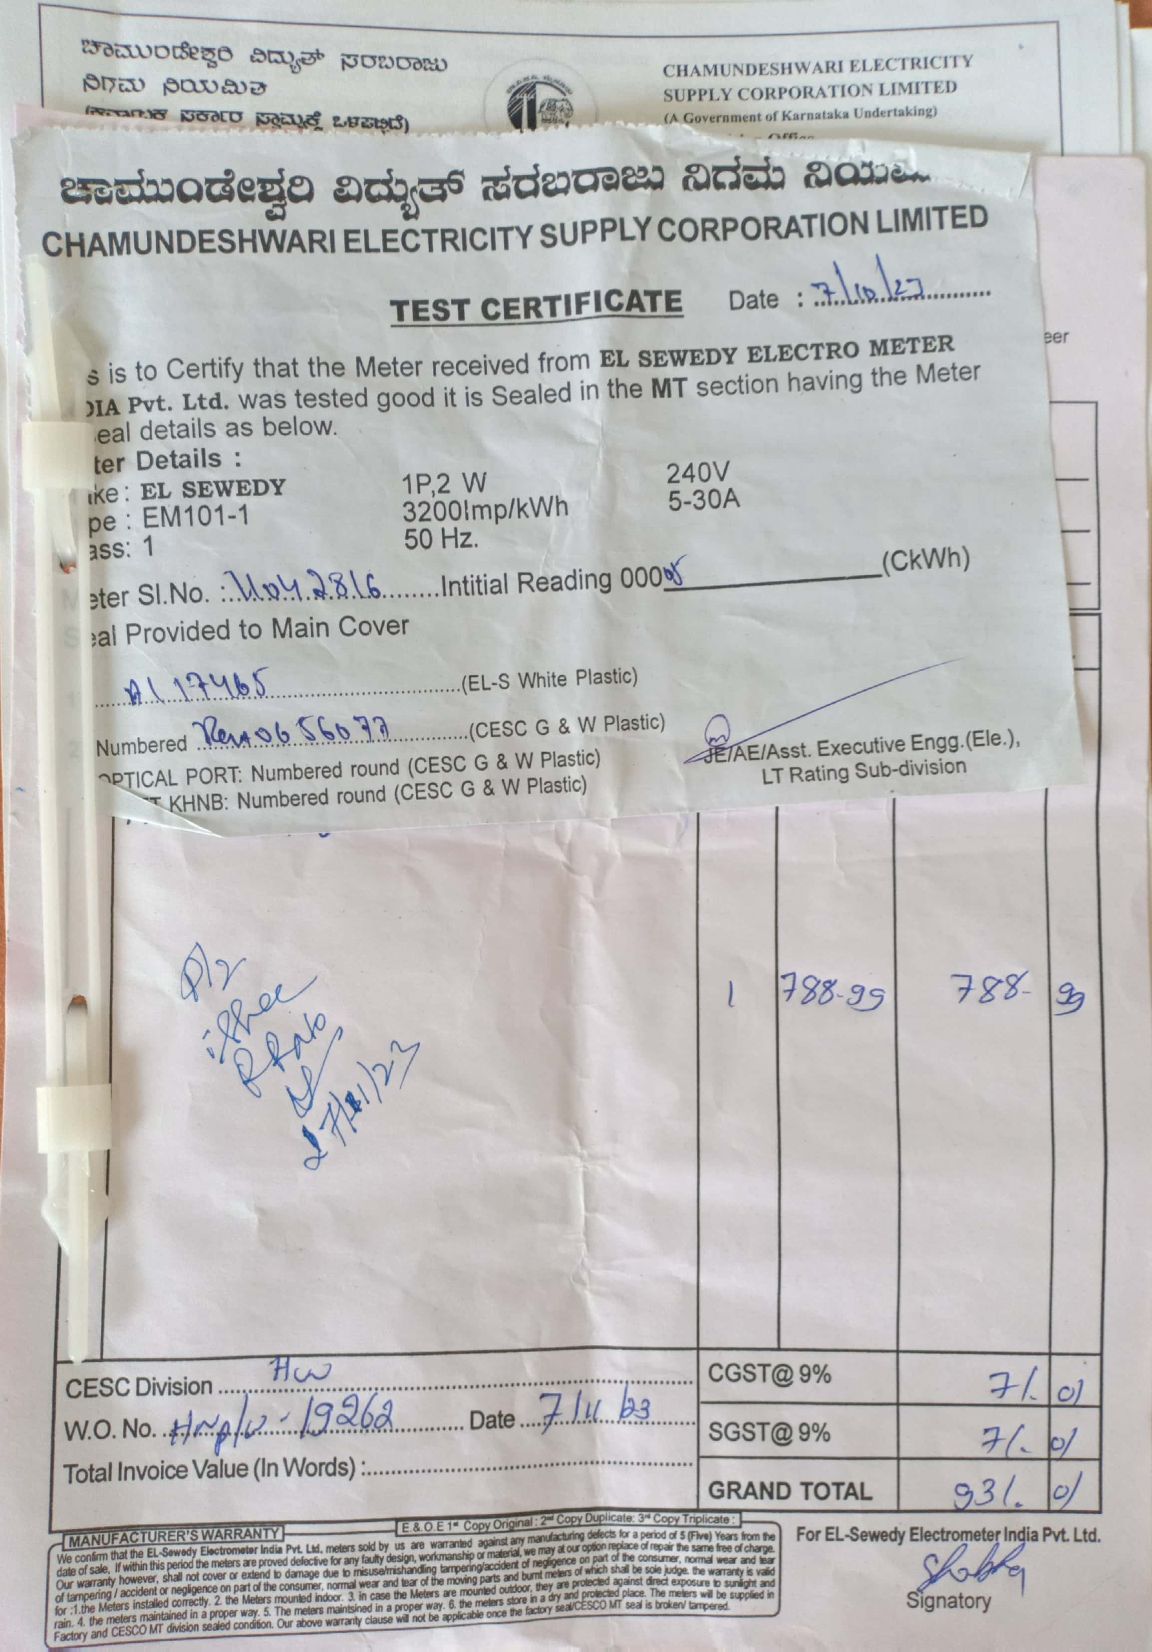 ಚಾಮುಂಡೇಶ್ವರಿ ವಿದ್ಯುತ್ ಸರಬರಾಜು
ನಿಗಮ ನಿಯಮಿತ
(ಕರ್ನಾಟಕ ಸರ್ಕಾರ ಸ್ವಾಮ್ಯಕ್ಕೆ ಒಳಪಟ್ಟಿದೆ)
CHAMUNDESHWARI ELECTRICITY
SUPPLY CORPORATION LIMITED
(A Government of Karnataka Undertaking)
Office
ಚಾಮುಂಡೇಶ್ವರಿ ವಿದ್ಯುತ್ ಸರಬರಾಜು ನಿಗಮ
CHAMUNDESHWARI ELECTRICITY SUPPLY CORPORATION LIMITED
TEST CERTIFICATE Date : 7/10/23
s is to Certify that the Meter received from EL SEWEDY ELECTRO METER
DIA Pvt. Ltd. was tested good it is Sealed in the MT section having the Meter
eal details as below.
ter Details :
ke : EL SEWEDY 1P,2 W 240V
pe : EM101-1 3200Imp/kWh 5-30A
ass: 1 50 Hz.
eter Sl.No. : 11042816 Intitial Reading 00005 (CkWh)
eal Provided to Main Cover
A117465 (EL-S White Plastic)
Numbered 0656077 (CESC G & W Plastic)
OPTICAL PORT: Numbered round (CESC G & W Plastic)
KHNB: Numbered round (CESC G & W Plastic)
JE/AE/Asst. Executive Engg.(Ele.),
LT Rating Sub-division
eer
1 788-99 788- 99
27/11/23
CESC Division HW
W.O. No. 19262 Date 7/11/23
Total Invoice Value (In Words) :
CGST@ 9% 71. 01
SGST@ 9% 71. 01
GRAND TOTAL 931. 01
E.& O.E 1st Copy Original : 2nd Copy Duplicate: 3rd Copy Triplicate :
MANUFACTURER'S WARRANTY
We confirm that the EL-Sewedy Electrometer India Pvt. Ltd, meters sold by us are warranted against any manufacturing defects for a period of 5 (Five) Years from the
date of sale, If within this period the meters are proved defective for any faulty design, workmanship or material, we may at our option replace of repair the same free of charge.
Our warranty however, shall not cover or extend to damage due to misuse/mishandling tampering/accident of negligence on part of the consumer, normal wear and tear
of tampering / accident or negligence on part of the consumer, normal wear and tear of the moving parts and burnt meters of which shall be sole judge. the warranty is valid
for :1.the Meters installed correctly. 2. the Meters mounted indoor. 3. in case the Meters are mounted outdoor, they are protected against direct exposure to sunlight and
rain. 4. the meters maintained in a proper way. 5. The meters maintsined in a proper way. 6. the meters store in a dry and protected place. The meters will be supplied in
Factory and CESCO MT division sealed condition. Our above warranty clause will not be applicable once the factory seal/CESCO MT seal is broken/ tampered.
For EL-Sewedy Electrometer India Pvt. Ltd.
Signatory